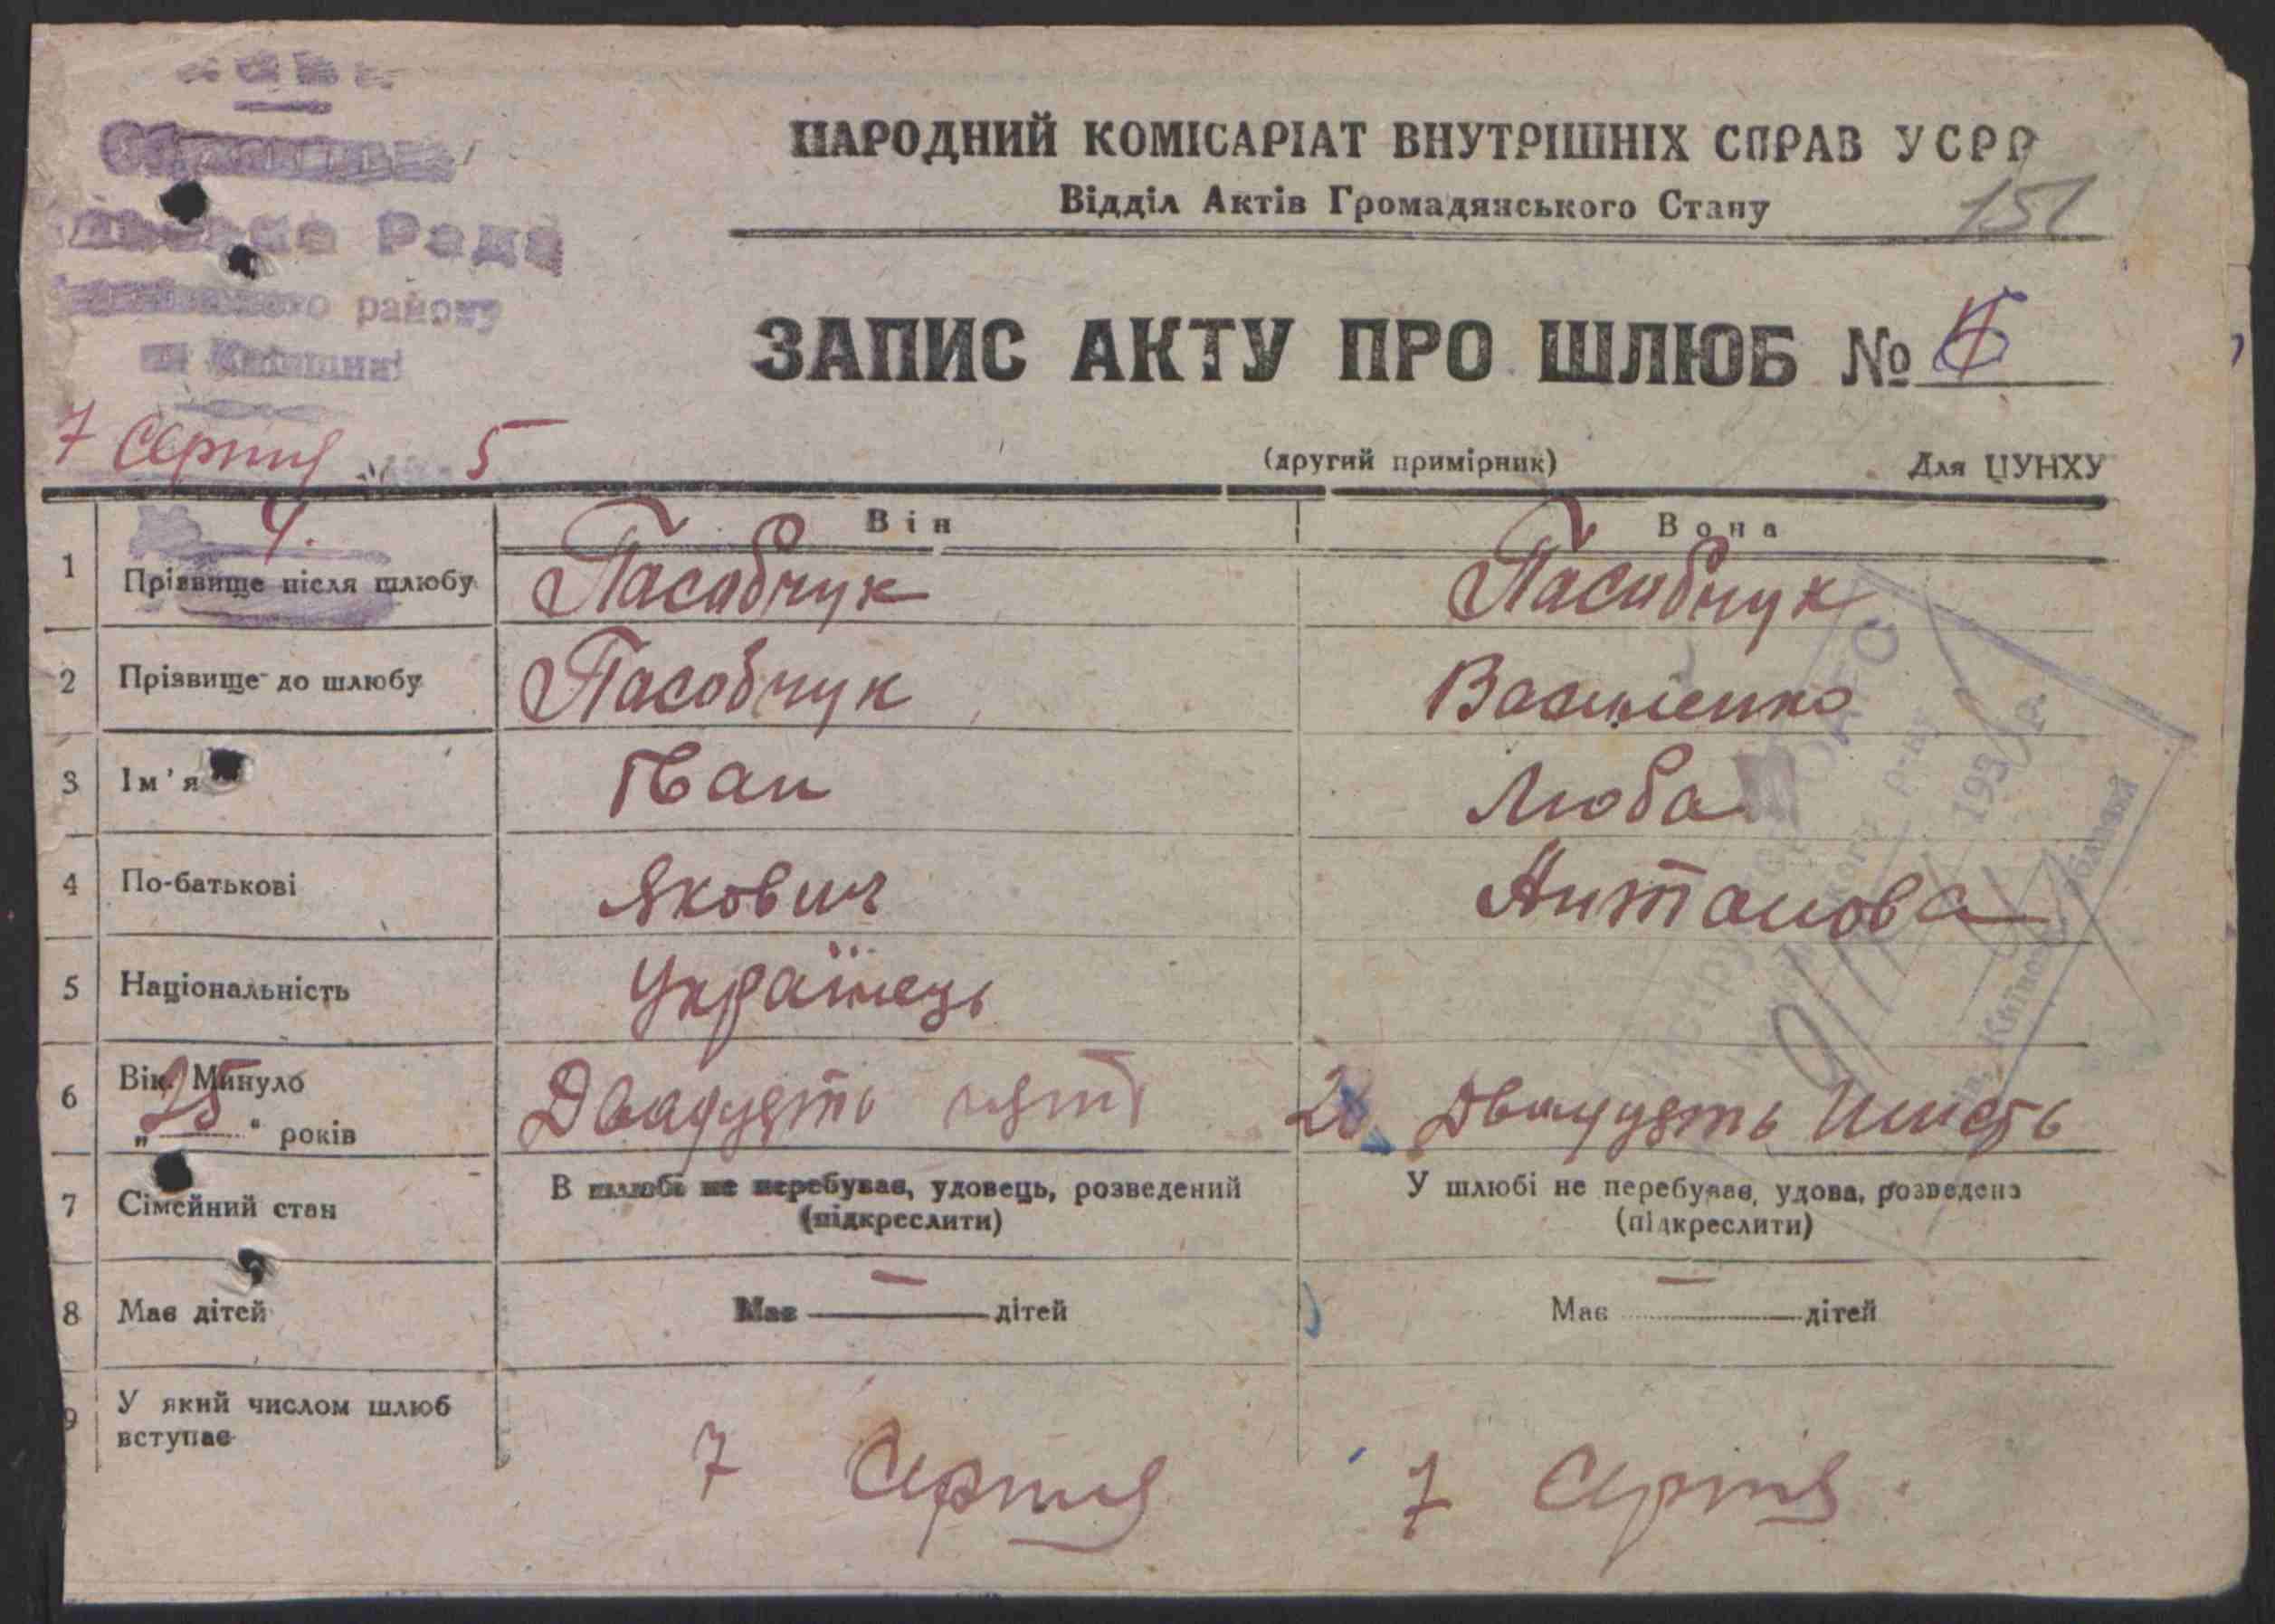 Рада
району
НАРОДНИЙ КОМІСАРІАТ ВНУТРІШНІХ СПРАВ УСРР
Відділ Актів Громадянського Стану
151
ЗАПИС АКТУ ПРО ШЛЮБ №
7 Серпня 5
(другий примірник) Для ЦУНХУ
Він Вона
1 Прізвище після шлюбу Пасабчук Пасабчук
2 Прізвище до шлюбу Пасобчук Василенко
3 Ім'я Іван Люба
4 По-батькові Якович Антанова
5 Національність Українець
6 Вік. Минуло „25" років Двадцять пять Двадцять шисть
7 Сімейний стан В шлюбі не перебував, удовець, розведений (підкреслити) У шлюбі не перебував, удова, розведена (підкреслити)
8 Має дітей Має — дітей Має — дітей
9 У який числом шлюб вступає 7 Серпня 7 Серпня